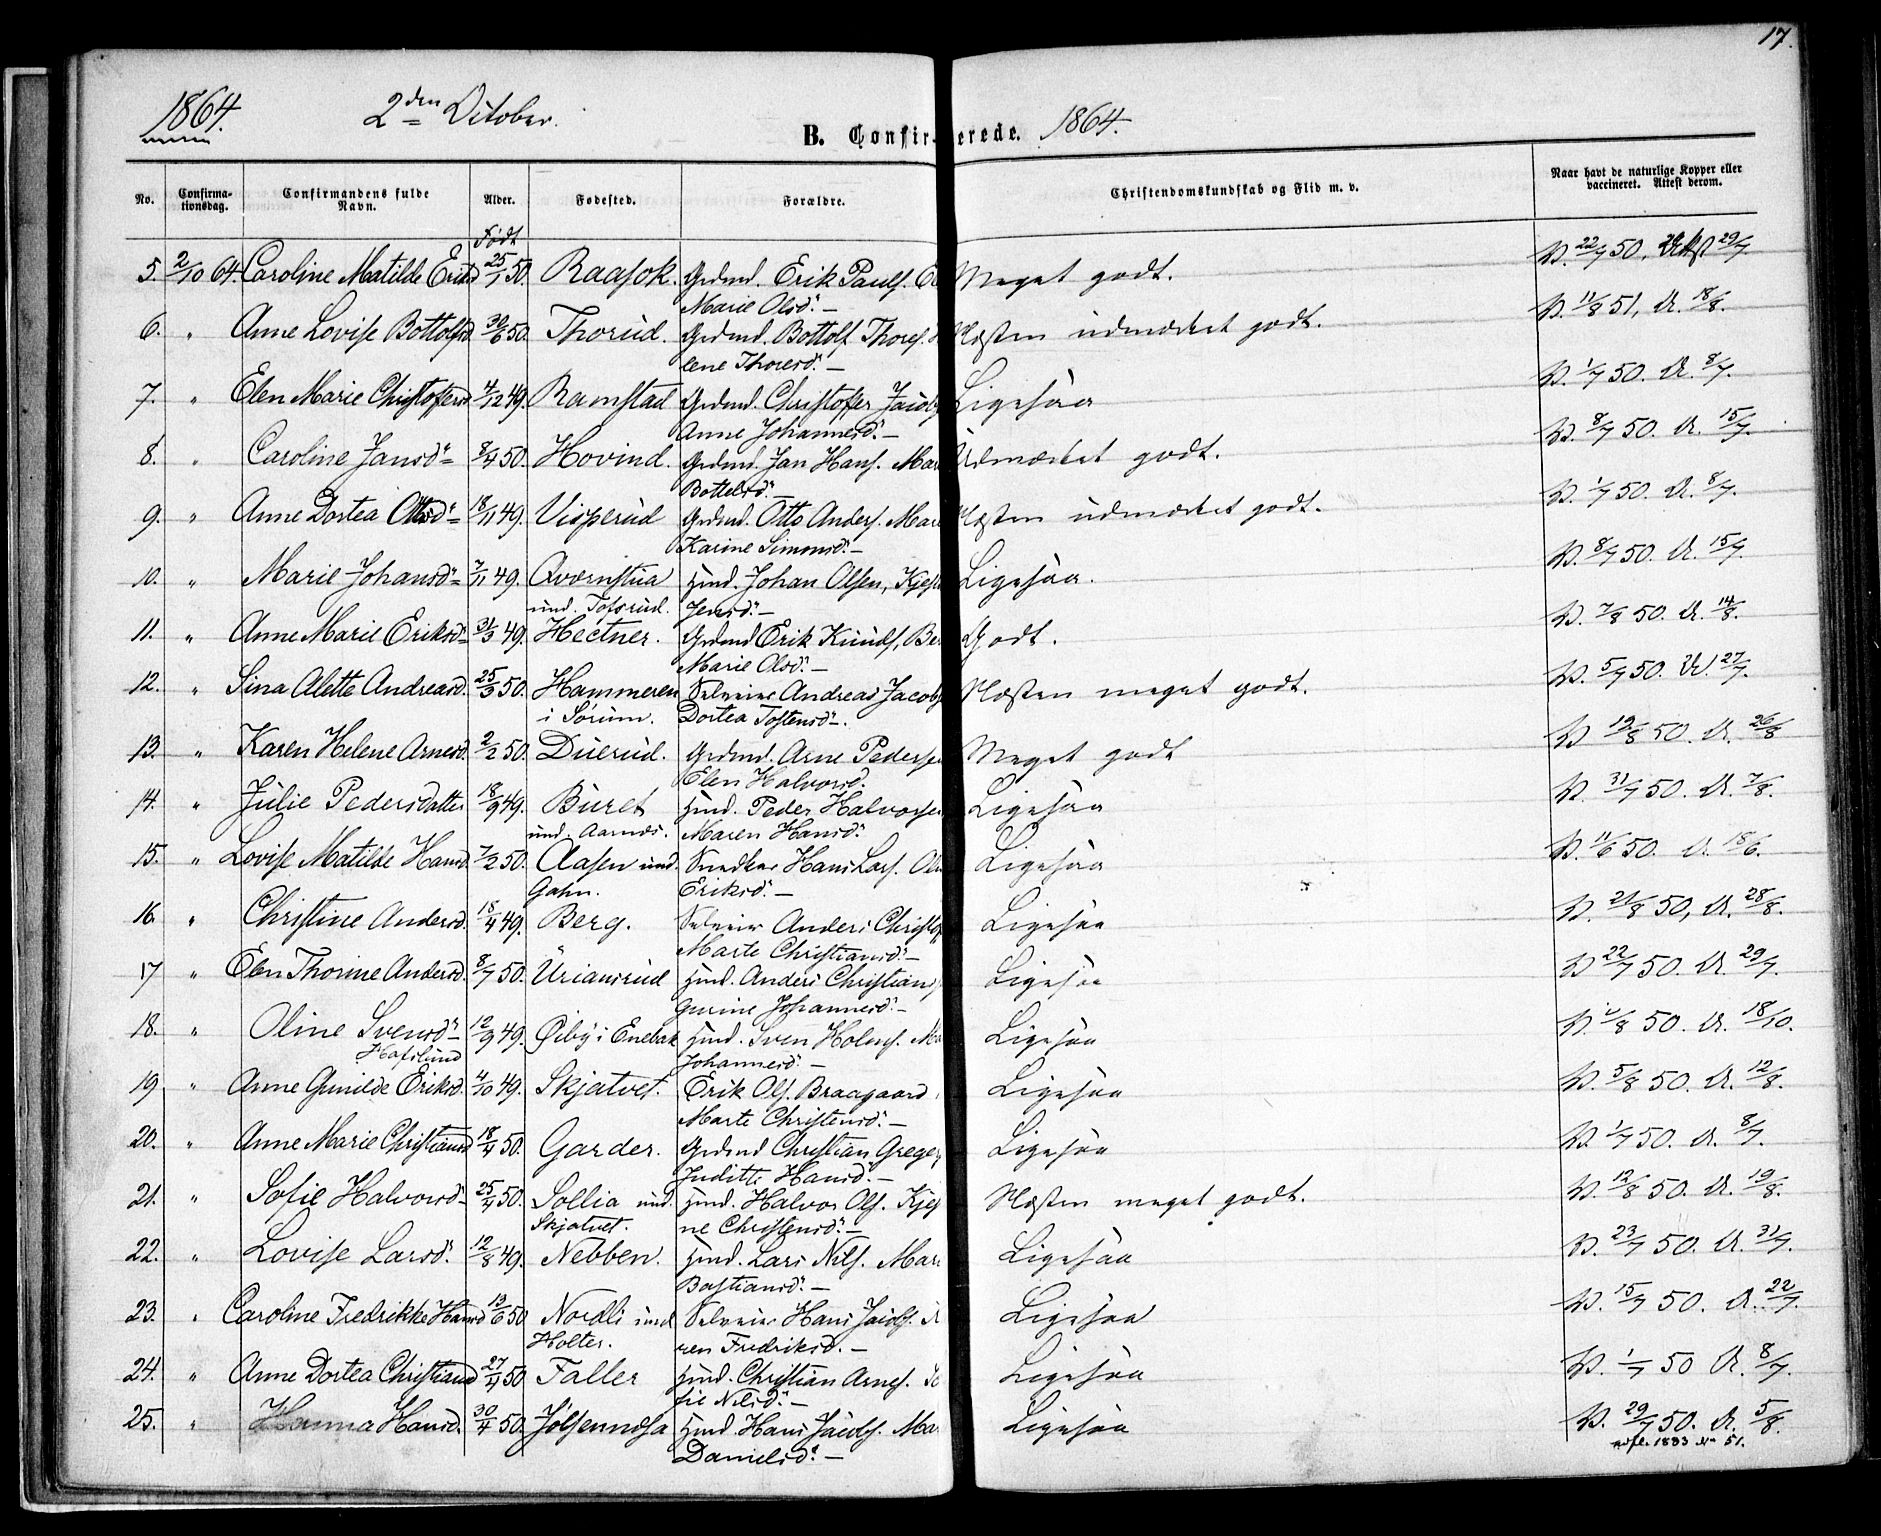 17.
1864. 2den October. B. Confir- erede. 1864.
No. Confirma-tionsdag. Confirmandens fulde Navn. Alder. Fødested. Forældre. Christendomskundskab og Flid m. v. Naar havt de naturlige Kopper eller vaccineret. Attest derom.
Født
5. 2/10 64. Caroline Matilde Eriksd 25/1 50. Raasok. Grdmd. Erik Pauls. Meget godt. V. 22/7 50, 29/7
Marie Olsd. —
6. " Anne Lovise Bottolfsd. 30/6 50. Thorud. Grdmd. Bottolf Thores. Næsten udmærket godt. V. 11/8 51, A. 18/8.
lene Thoresd. —
7. " Elen Marie Christofersd 4/12 49. Ramstad Grdmd. Christoffer Jacobs Ligesaa V. 1/7 50. A. 8/7.
Anne Johannesd. —
8. " Caroline Jansd 8/4 50. Hovind. Grdmd. Jan Hans. Mar Udmærket godt. V. 8/7 50. A. 15/7.
Bottelsd. —
9. " Anne Dortea Ottosd 18/11 49. Visperud Grdmd. Otto Anders. Mar Næsten udmærket godt. V. 1/7 50. A. 8/7.
Karine Simonsd. —
10. " Marie Johansd 7/11 49. Qværnstua Hmd. Johan Olsen, Kjes Ligesaa. V. 8/7 50. A. 15/7.
und. Tofsrud. Jensd. —
11. " Anne Marie Eriksd 31/3 49. Hectner. Grdmd Erik Knuds, Be Godt. V. 7/8 50. A. 14/8.
Marie Olsd. —
12. " Sina Alette Andreasd. 25/3 50. Hammeren Selveier Andreas Jacobs Næsten meget godt. V. 5/7 50. A. 27/7.
i Sørum. Dortea Tostensd —.
13. " Karen Helene Arnesd. 2/2 50. Duerud. Grdmd. Arne Pederse Meget godt V 19/8 50. A. 26/8
Elen Halvorsd.
14. " Julie Pedersdatter 18/9 49. Buret Hmd. Peder Halvorsen Ligesaa V. 31/7 50. A. 7/8.
und. Aarnæs. Maren Hansd.
15. " Lovise Matilde Hansd. 7/2 50. Aasen und. Snedker Hans Lars. Ligesaa V. 11/6 50. A. 18/6.
Gahn. Eriksd. —
16. " Christine Andersd. 18/4 49. Berg. Selveier Anders Christof Ligesaa V. 21/8 50, A. 28/8.
Marte Christiansd. —
17 " Elen Thorine Andersd. 8/7 50. Uriansrud Hmd. Anders Christians Ligesaa V 22/7 50. A. 29/7.
Gurine Johannesd. —
18. " Oline Svensd — 12/9 49. Øiby i Enebak Hmd. Sven Holms. Ma Ligesaa 50. A. 18/10.
Hafslund Johannesd. —
19 " Anne Gunilde Eriksd. 4/10 49. Skjatvet. Erik Ols. Braagaard Ligesaa V. 5/8 50. A. 12/8.
Marte Christensd. —
20. " Anne Marie Christiansd 18/4 50. Garder. Grdmd Christian Greger Ligesaa V. 1/7 50. A. 8/7.
Juditte Hansd. —
21. " Sofie Halvorsd 25/4 50. Sollia und. Hmd. Halvor Ols. Kjes Næsten meget godt. V. 12/8 50. A. 19/8.
Skjatvet. ne Christensd. —
22. " Lovise Larsd. 12/8 49. Nebben. Hmd. Lars Nils. Mar Ligesaa V. 23/7 50. A. 31/7.
Bastiansd. —
23. " Caroline Fredrikke Hansd 13/6 50 Nordli und Selveier Hans Jacobs. Ligesaa V. 15/7 50. A. 22/7.
Holter. ren Fredriksd. —
24. " Anne Dortea Christiansd 27/4 50 Faller Hmd. Christian Arnes. So Ligesaa V. 1/7 50 A. 8/7.
fie Nilsd. —
25. " Hanna Hansd. 30/4 50. Hmd. Hans Jacobs. Mar Ligesaa V. 29/7 50. A. 5/8.
Danielsd. — 1883 No 51.